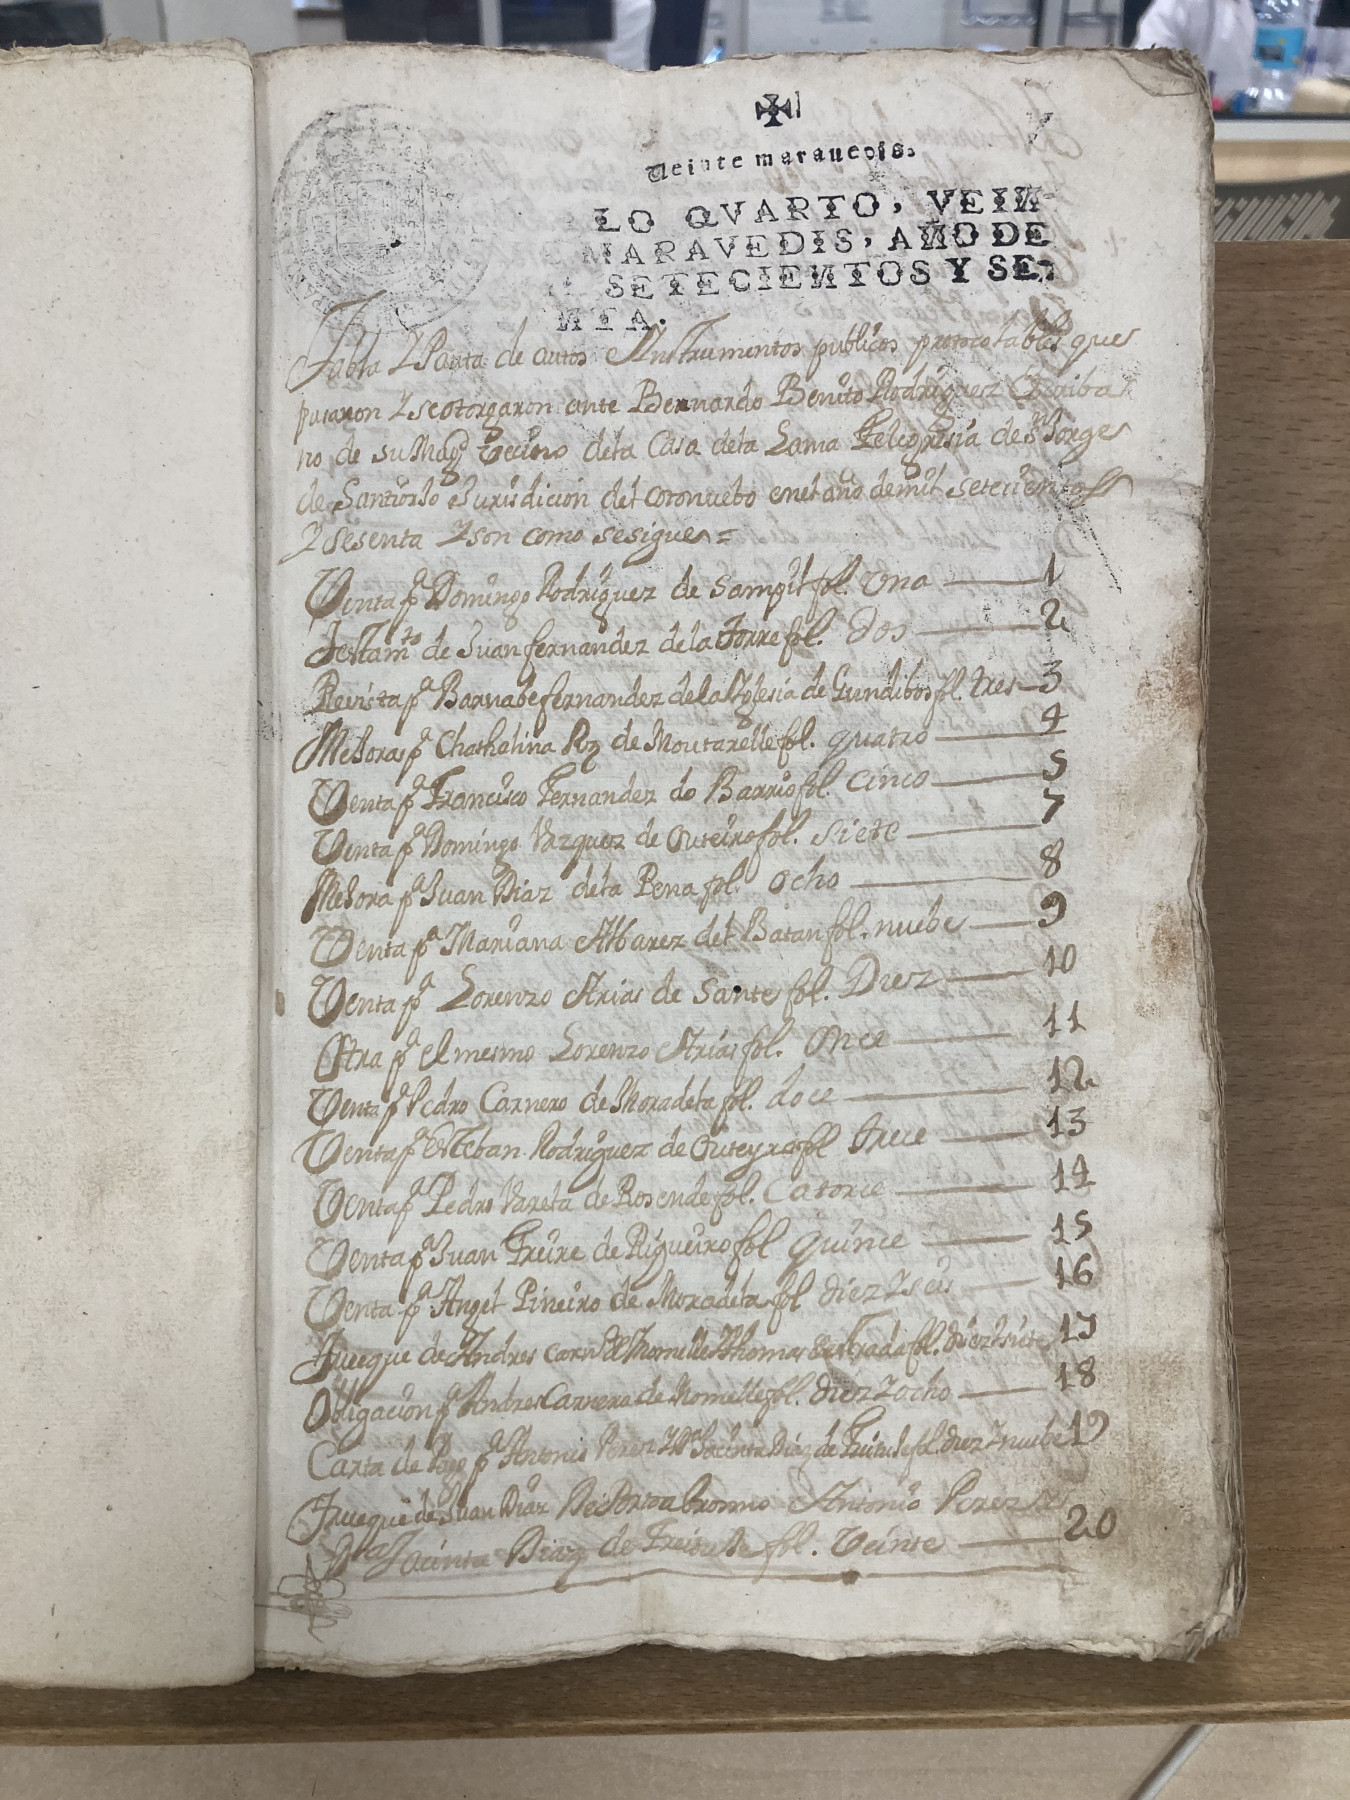 Veinte maravedis.
LO QVARTO, VEIN
MARAVEDIS, AÑO DE
SETECIENTOS Y SE-
NTA.
Tabla Y Pauta de autos Ynstrumentos publicos protocolables que
pasaron Y se otorgaron ante Bernardo Benito Rodriguez Escriba
no de su Magd Vecino dela Casa dela Lama felegresia de Sn Jorge
de Santiorso Jurisdicion del coronuebo enel año demil setecientos
Y sesenta Y son como sesigue =
Venta pa Domingo Rodriguez de Sampil fol. Una 1
Testamto de Juan fernandez dela Torre fol. Dos 2
Revista pa Barnabe fernandez dela Yglesia de Gundibos fol. tres 3
Mejoras pa Chathalina Rz de Moutarelle fol. quatro 4
Venta pa Francisco Fernandez do Barrio fol. Cinco 5
Venta pa Domingo Vazquez de Outeiro fol. Siete 7
Mejora pa Juan Diaz dela Pena fol. Ocho 8
Venta pa Mariana Albarez del Batan fol. nuebe 9
Venta pa Lorenzo Arias de Sante fol. Diez 10
Otra pa el mesmo Lorenzo Arias fol. Once 11
Venta pa Pedro Carnero de Moradela fol. doce 12
Venta pa Esteban Rodriguez de Outeyro fol trece 13
Venta pa Pedro Varela de Rosende fol. Catorce 14
Venta pa Juan Freire de Rigueiro fol quince 15
Venta pa Angel Pineiro de Moradela fol diez Y seis 16
Trueque de Andres Carno de Nomelle Y Thomas Estrada fol. diez Y siete 17
Obligacion pa Andres Carnero de Nomelle fol. diez Y ocho 18
Carta de Pago pa Antonio Perez Y Da Jacinta Diaz de Freitule fol. diez Y nuebe 19
Trueque de Juan Diaz De Portoabronno Antonio Perez Y
Da Jacinta Diaz de fol. Veinte 20